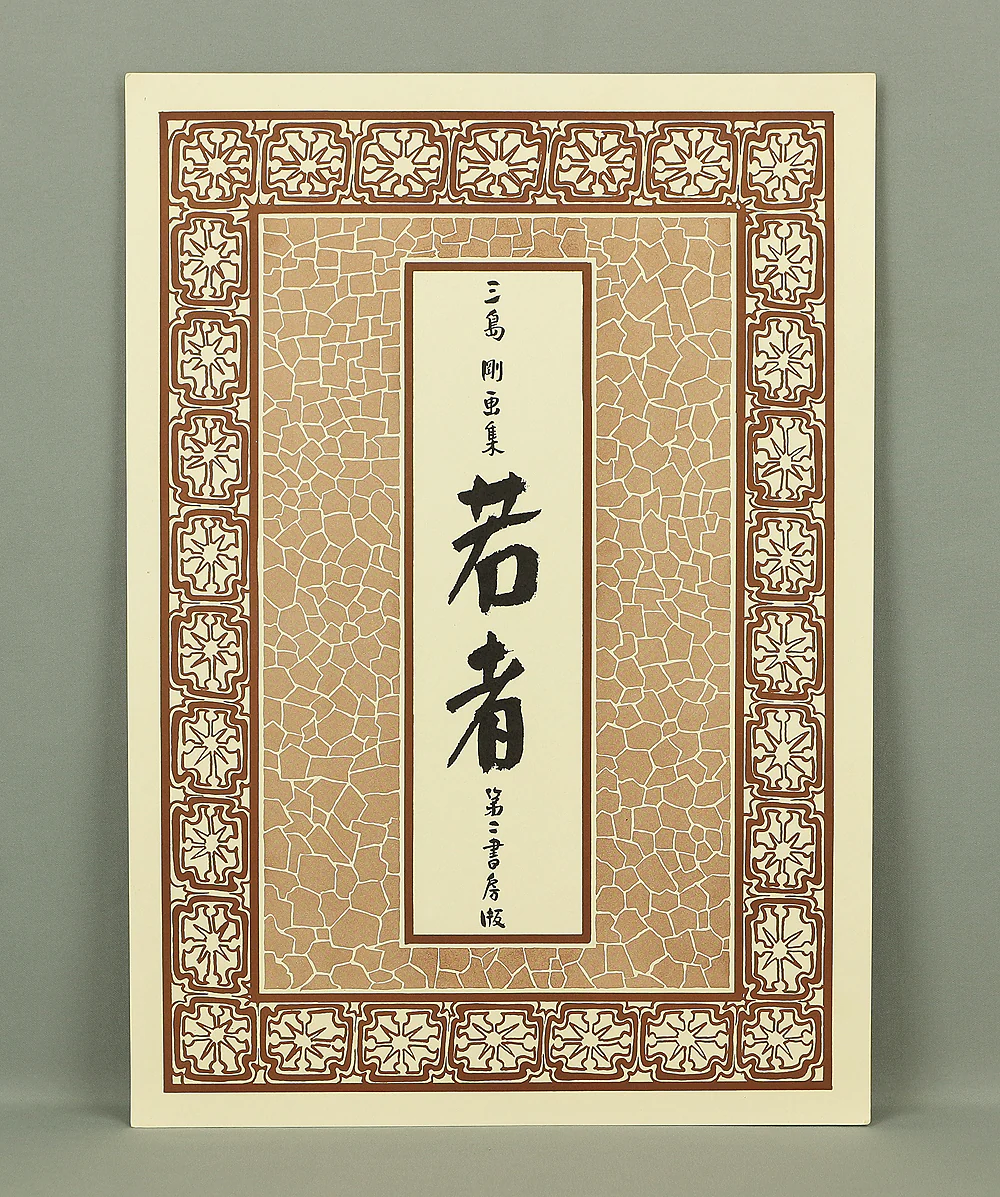 三島剛画集
若者
第二書房版